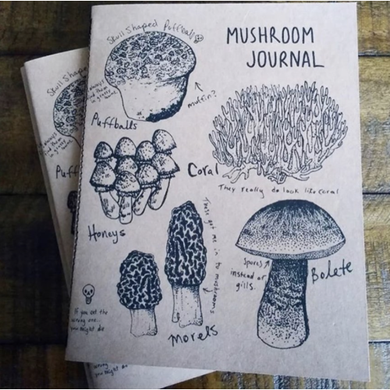 Skull Shaped Puffball
MUSHROOM
JOURNAL
muffin?
Puffballs
Coral
They really do look like coral
Honeys
These got me in to mushrooms
Spores
instead of
gills.
Bolete
If you eat the
wrong one,
you might die
Morels
Skull Shaped
Puff